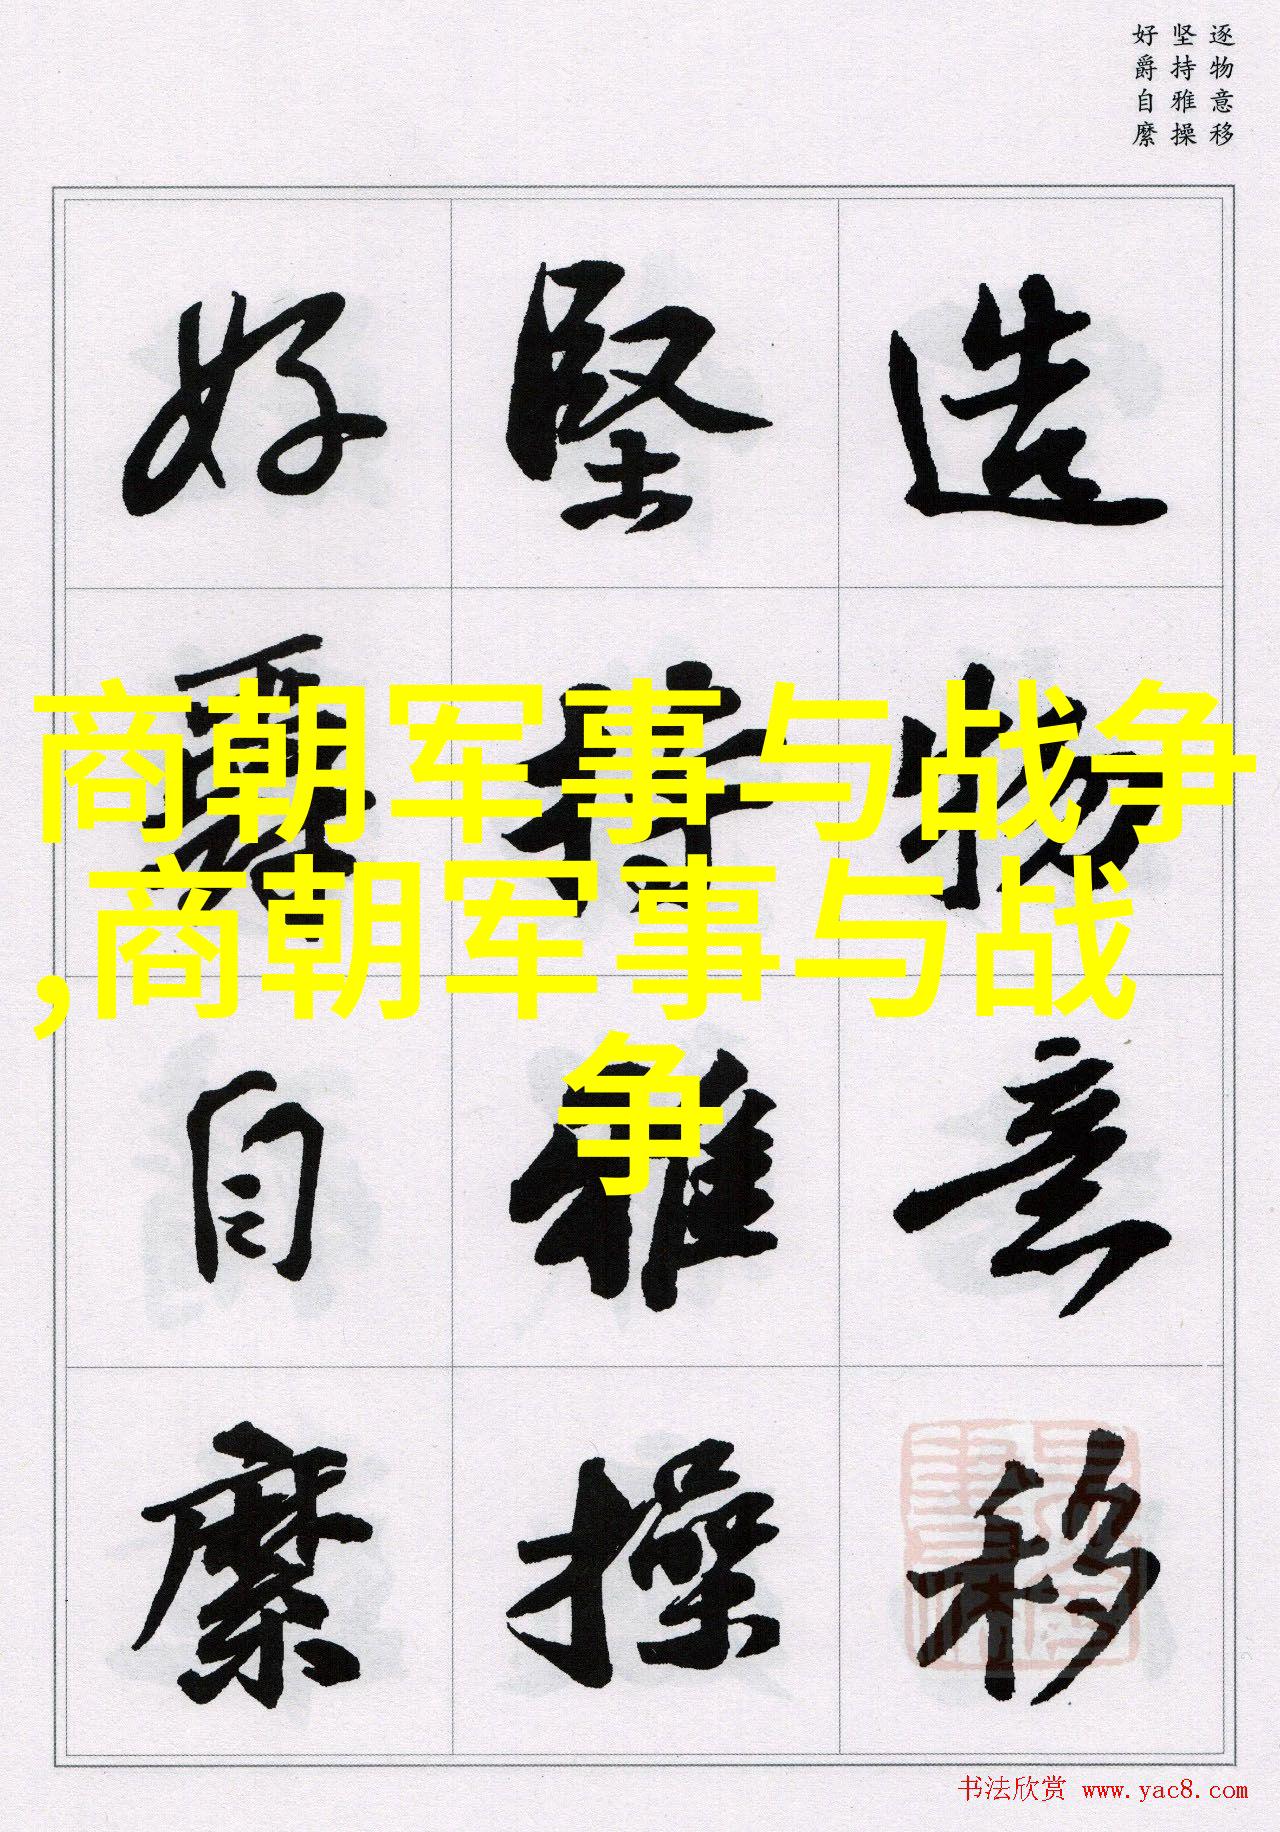 逐物意移
坚持雅操
好爵自縻
造物意移
堅持雅操
好爵自縻
商朝军事与战争
,商朝军事与战
争
书法欣赏 www.yac8.com